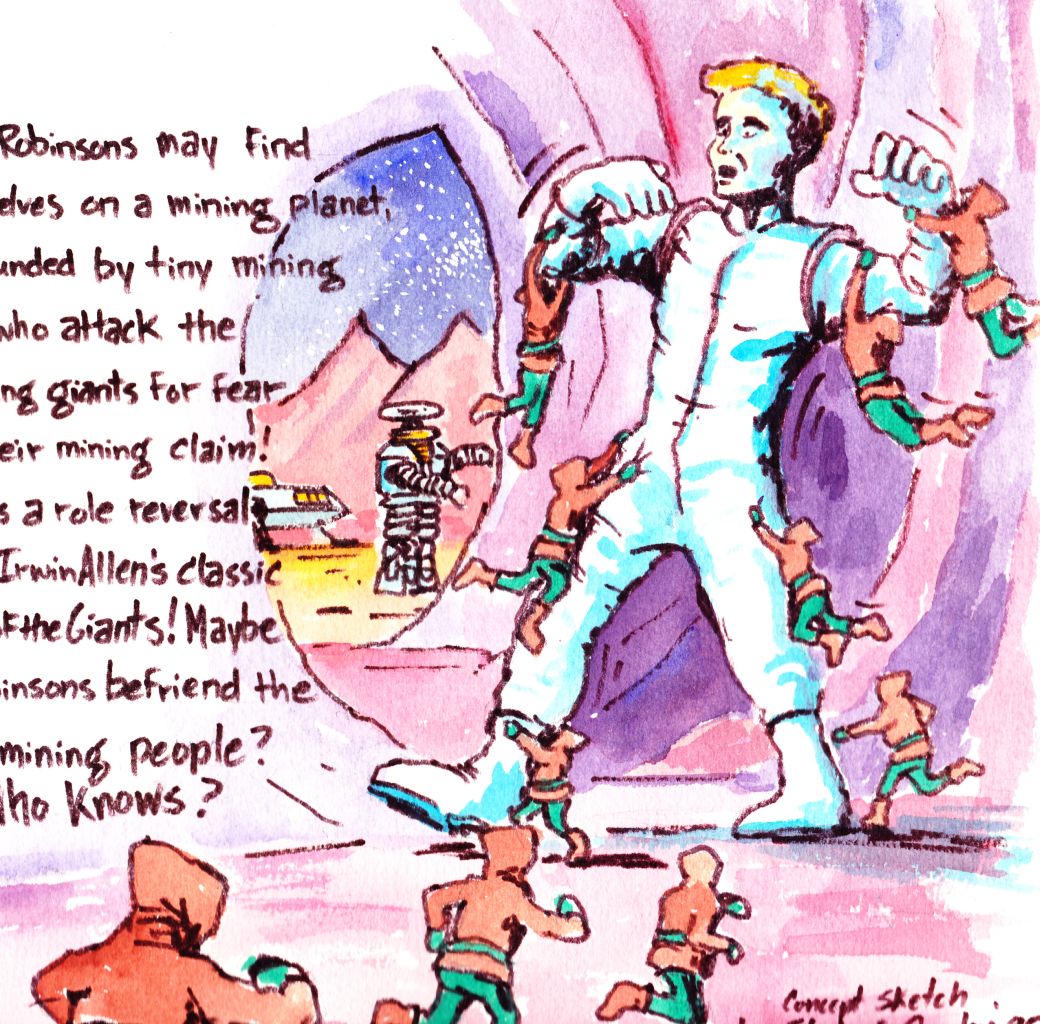 Robinsons may find
elves on a mining planet,
unded by tiny mining
who attack the
ng giants for fear
eir mining claim!
s a role reversal
Irwin Allen's classic
of the Giants! Maybe
insons befriend the
mining people?
Who Knows?
Concept Sketch